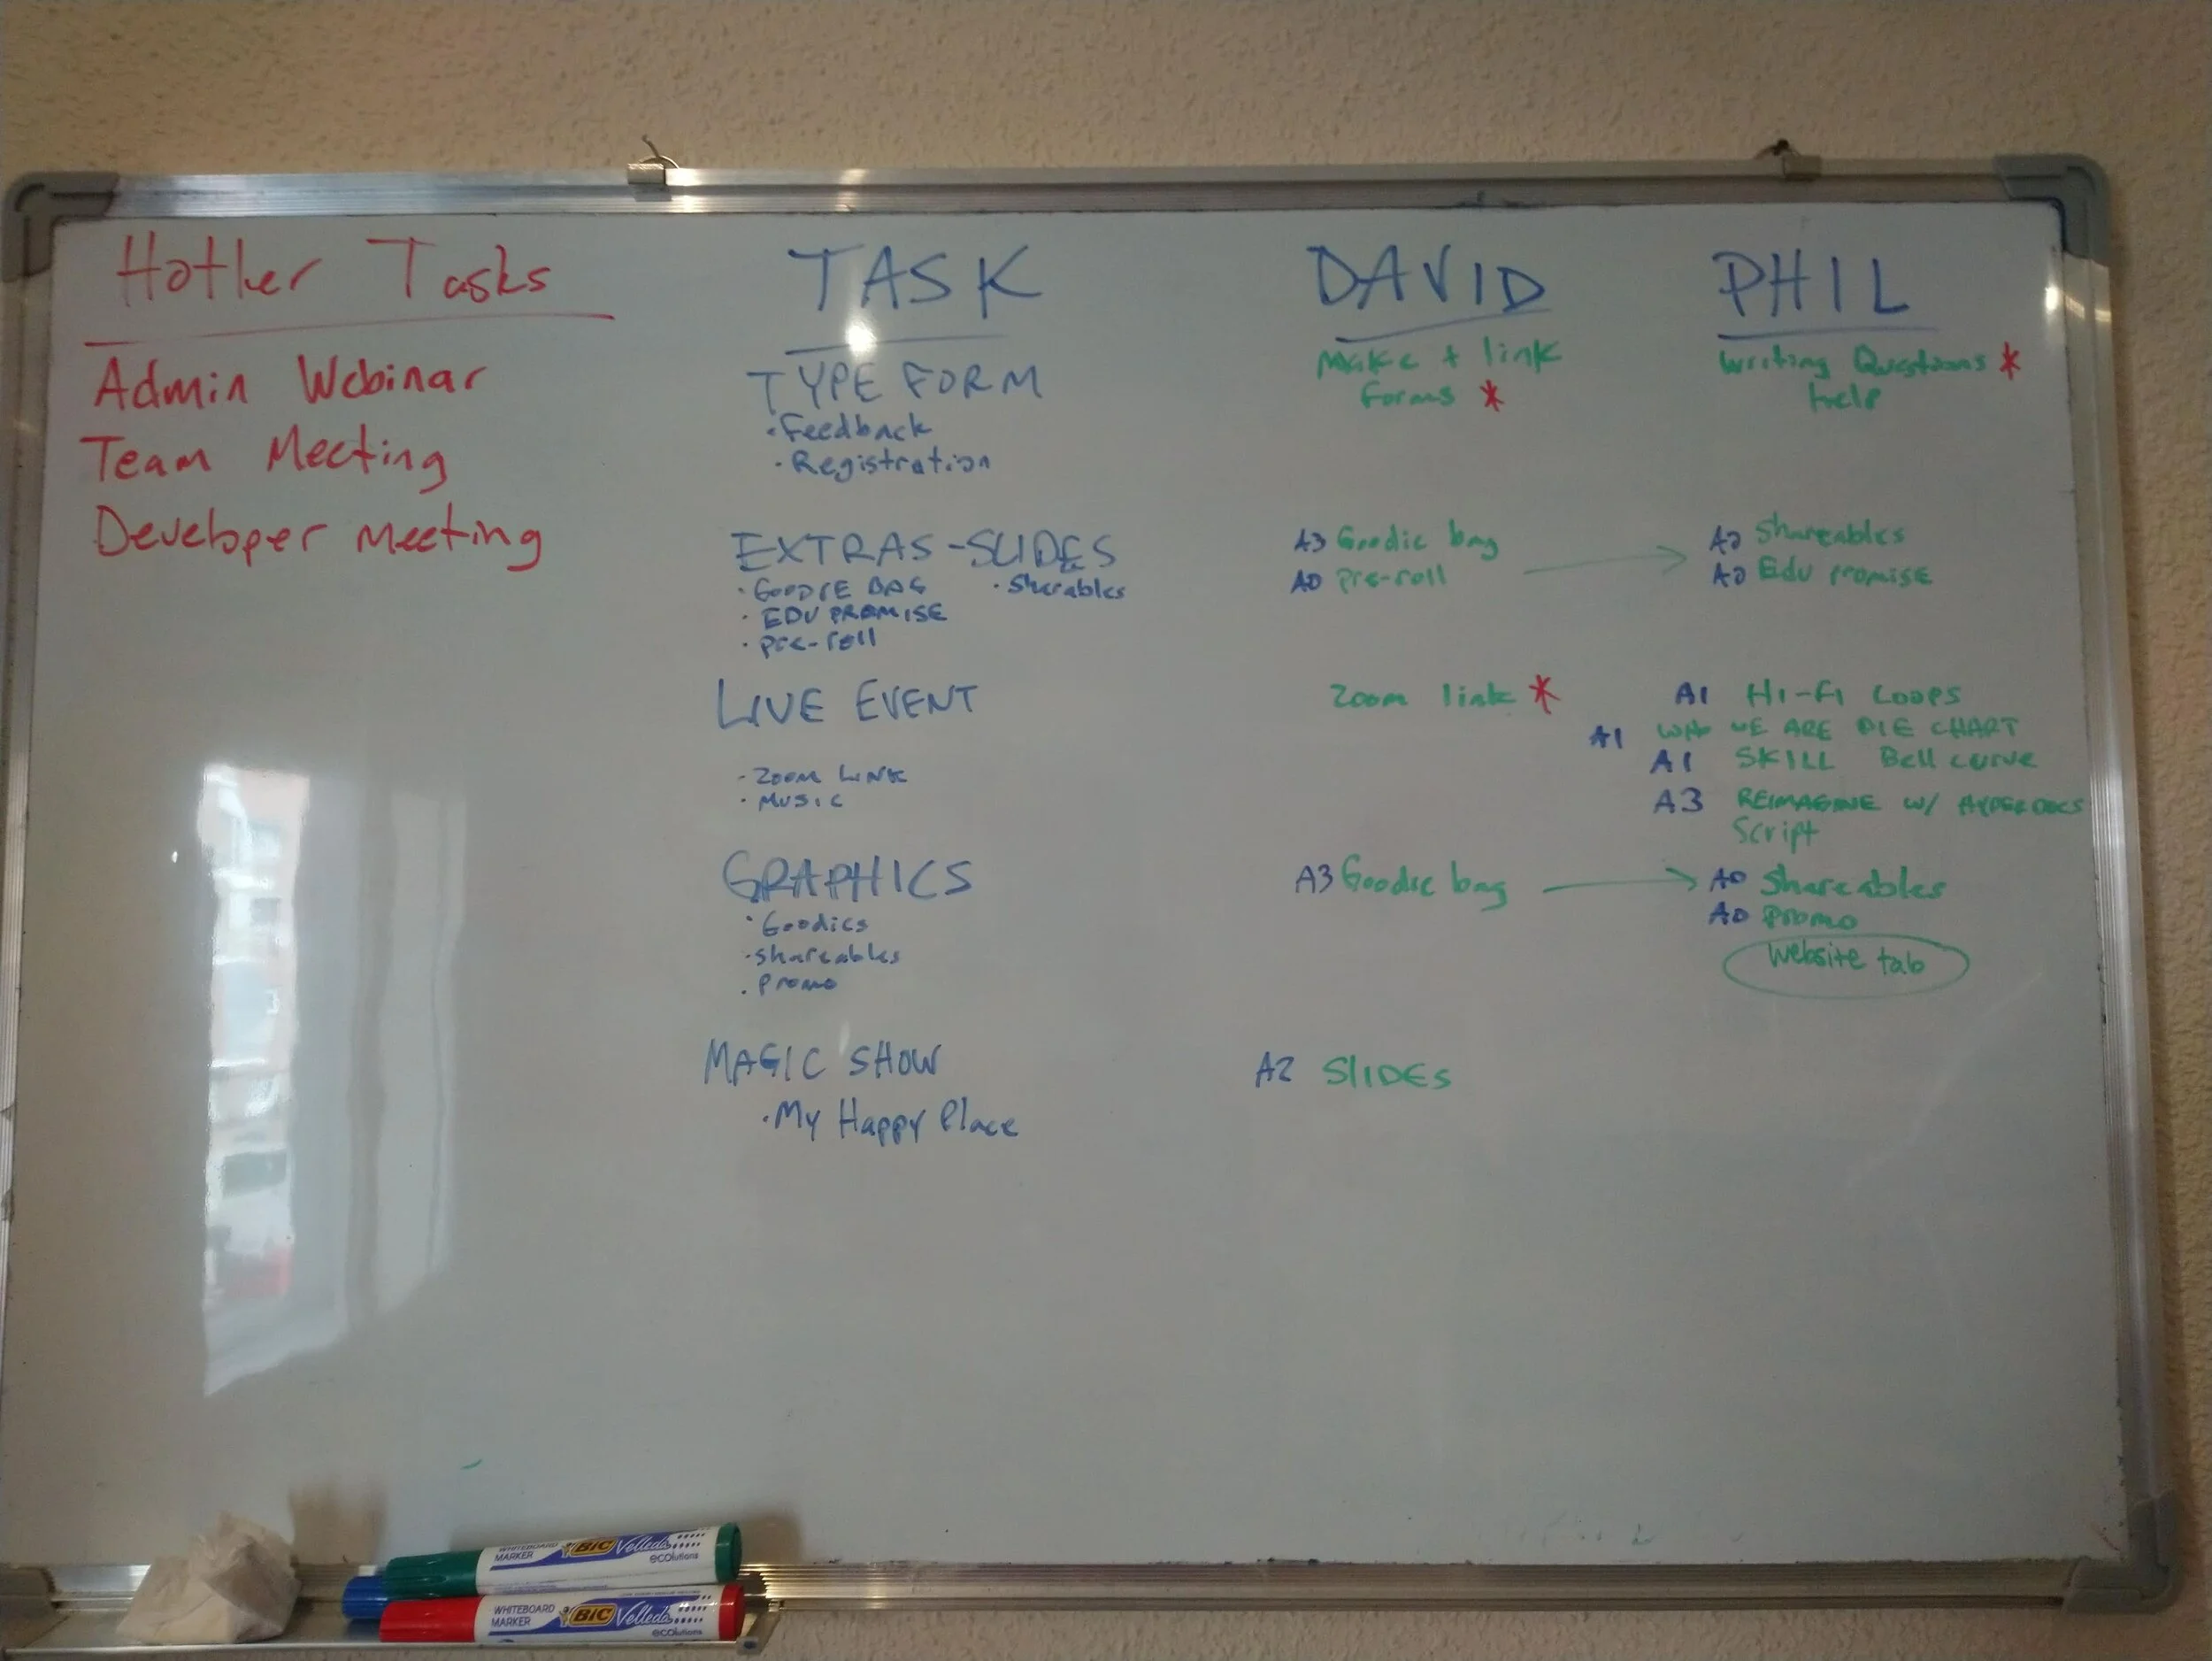 Hotker Tasks
Admin Webinar
Team Meeting
Developer Meeting
TASK
TYPE FORM
• Feedback
• Registration
EXTRAS - SLIDES
• GOODIE BAG • Sharables
• EDU PROMISE
• pre-roll
LIVE EVENT
- ZOOM LINK
• MUSIC
GRAPHICS
• Goodies
• shareables
• Promo
MAGIC SHOW
• My Happy Place
DAVID
Make + link
forms *
A3 Goodie bag
A0 pre-roll
Zoom link *
A3 Goodie bag
A2 SLIDES
PHIL
Writing Questions *
help
Shareables
Edu promise
A1 HI-FI LOOPS
A1 WHO WE ARE PIE CHART
A1 SKILL Bell curve
A3 REIMAGINE W/ HYPERDOCS
Script
A0 Shareables
A0 promo
Website tab
WHITEBOARD
MARKER
BIC Velleda
ecolutions
WHITEBOARD
MARKER
BIC Velleda
ecolutions